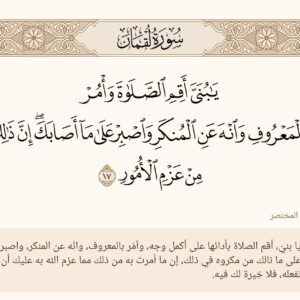 سُورَةُ لُقْمَانَ
يَٰبُنَيَّ أَقِمِ ٱلصَّلَوٰةَ وَأْمُرْ
بِٱلْمَعْرُوفِ وَٱنْهَ عَنِ ٱلْمُنكَرِ وَٱصْبِرْ عَلَىٰ مَآ أَصَابَكَۖ إِنَّ ذَٰلِكَ
مِنْ عَزْمِ ٱلْأُمُورِ ١٧
المختصر
يا بني، أقم الصلاة بأدائها على أكمل وجه، وأمُر بالمعروف، وانْه عن المنكر، واصبر
على ما نالك من مكروه في ذلك، إن ما أمرت به من ذلك مما عزم الله به عليك أن
تفعله، فلا خِيرة لك فيه.